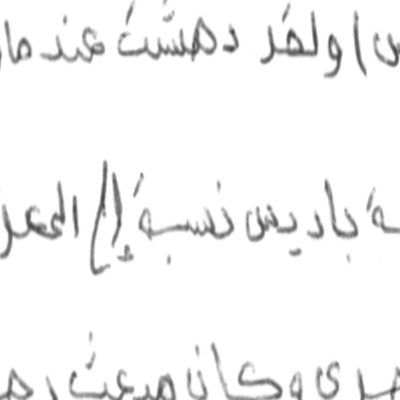 ولقد دهشت عندما
باديس نسبة إلى المعز
وكان مبعث